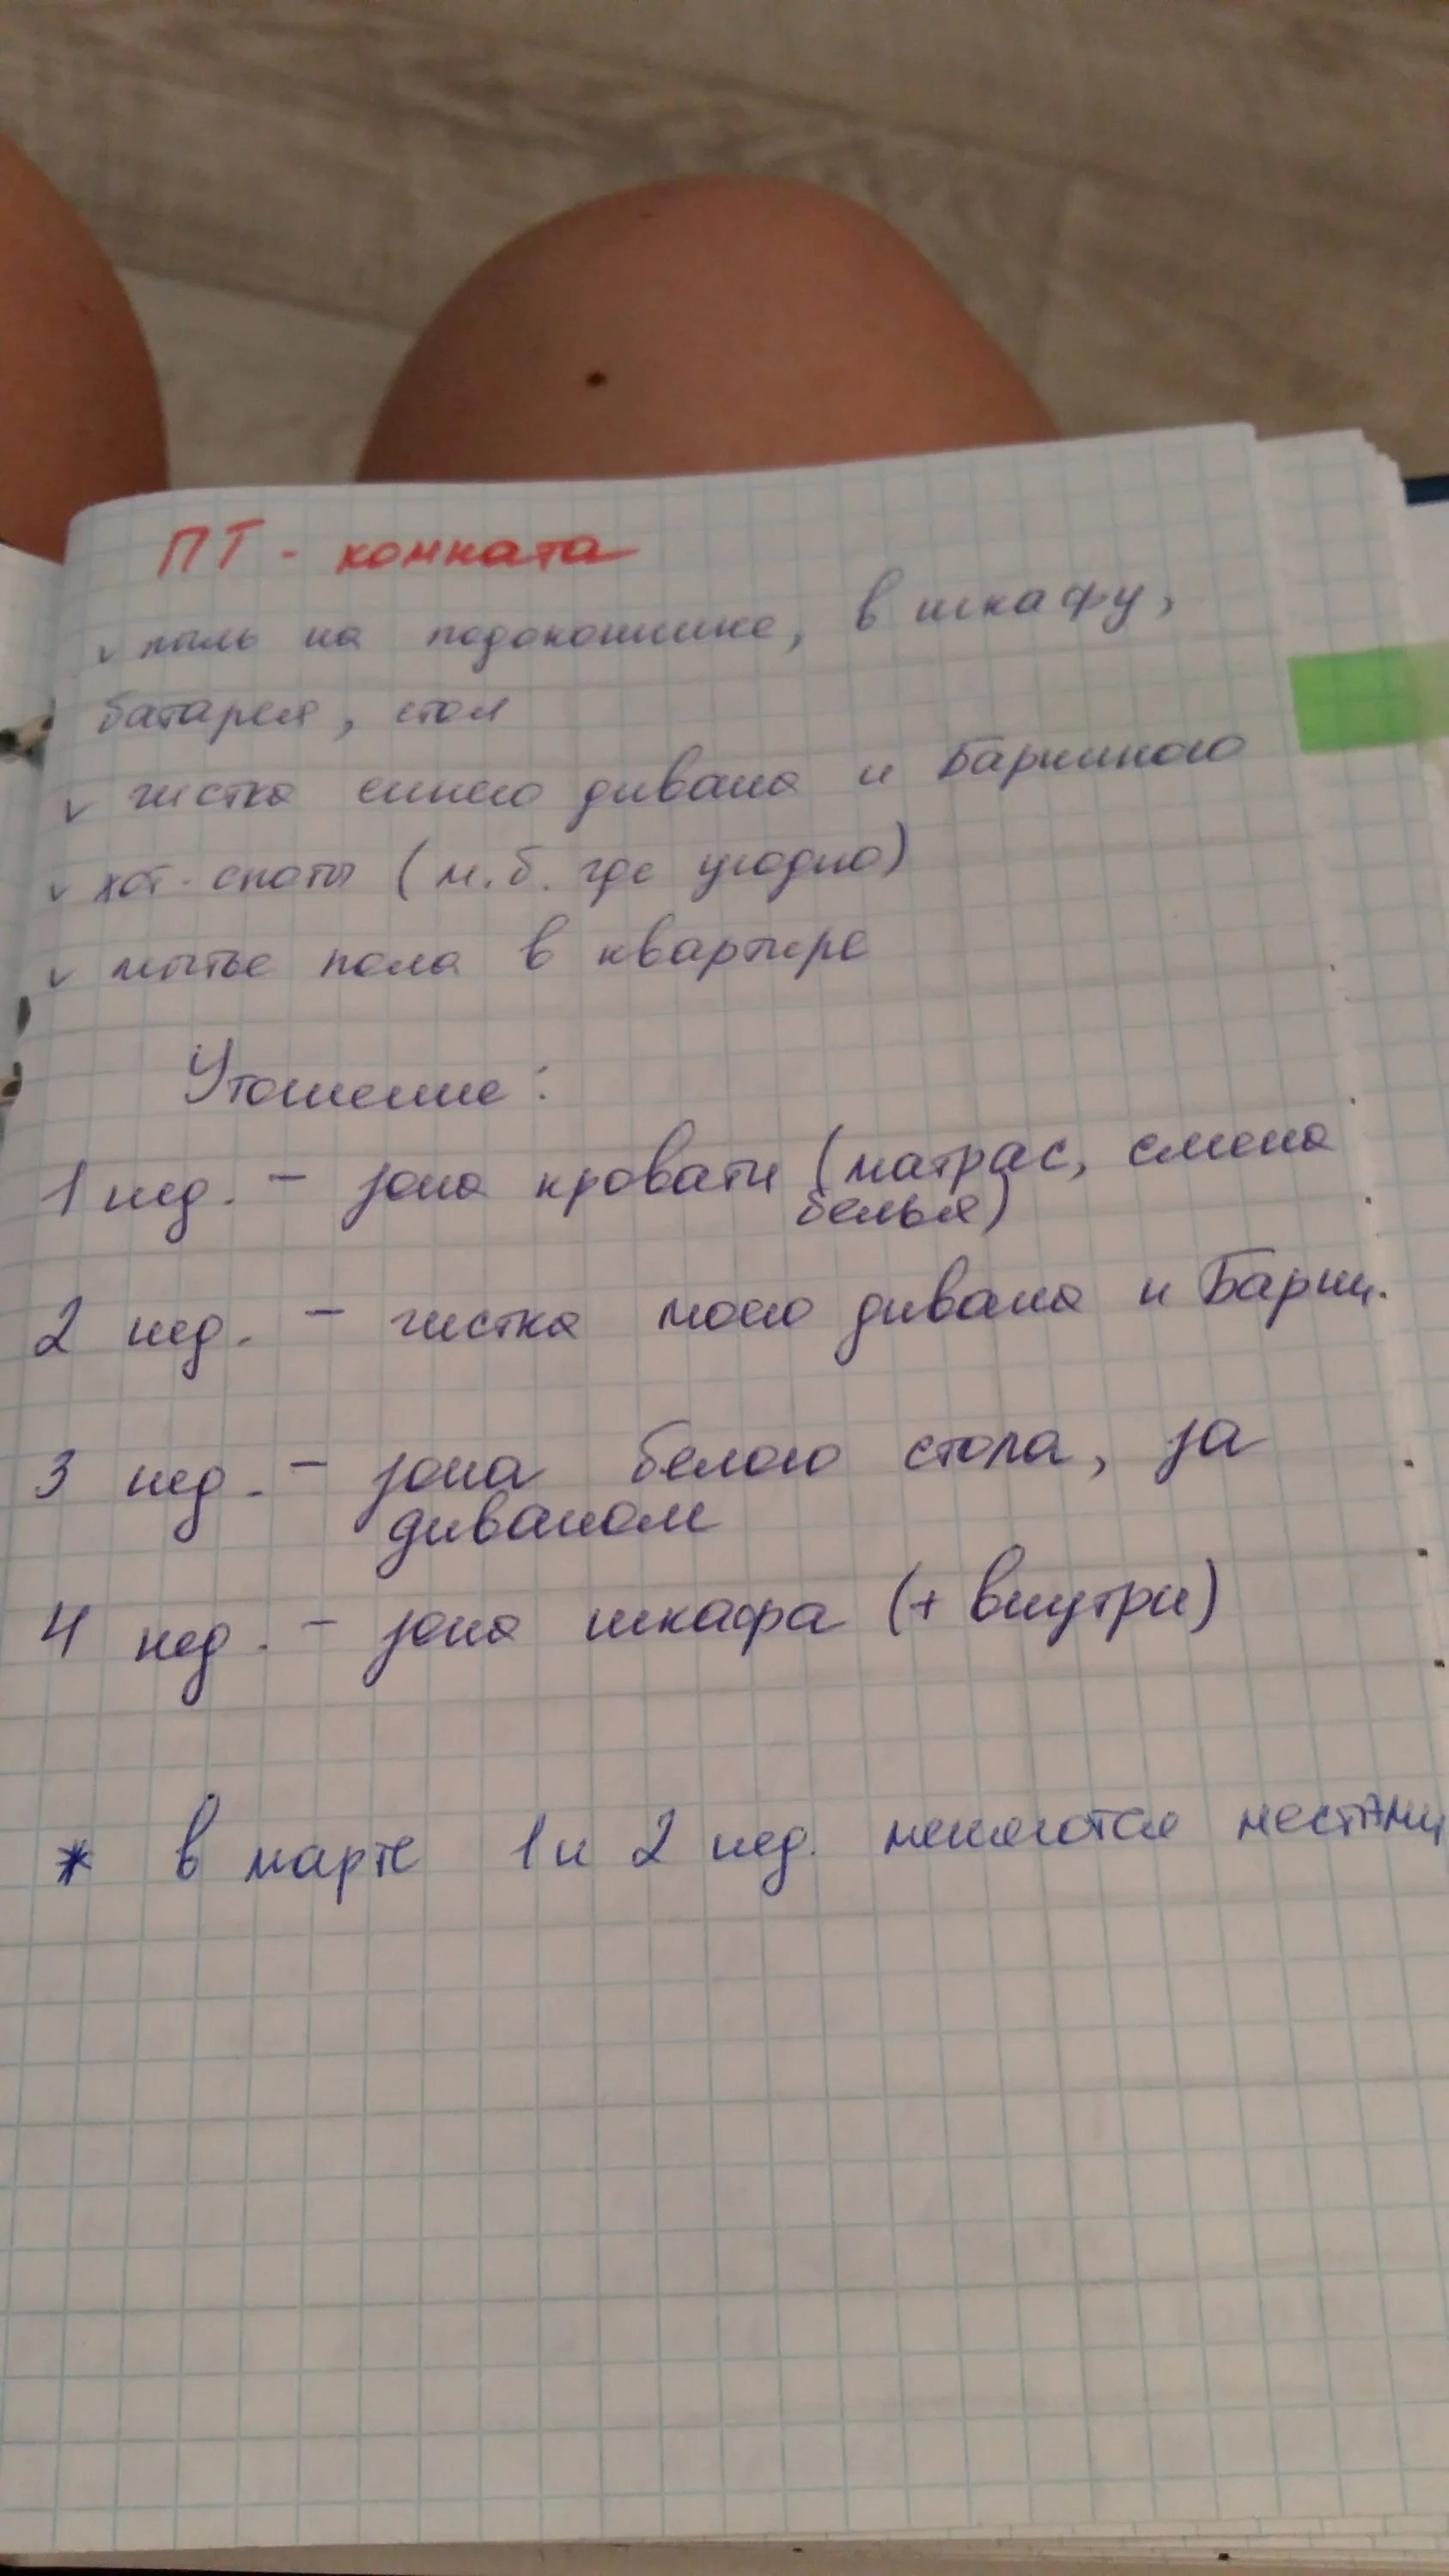 ПТ - комната
v пыль на подоконнике, в шкафу,
батарея, стол
v чистка синего дивана и Барниного
v хот-споты (м.б. где угодно)
v мытье пола в квартире
Утошнение:
1 нед. - зона кровати (матрас, смена
белья)
2 нед. - чистка моего дивана и Барни.
3 нед. - зона белого стола, за
диваном
4 нед. - зона шкафа (+ внутри)
* в марте 1 и 2 нед. меняются местами